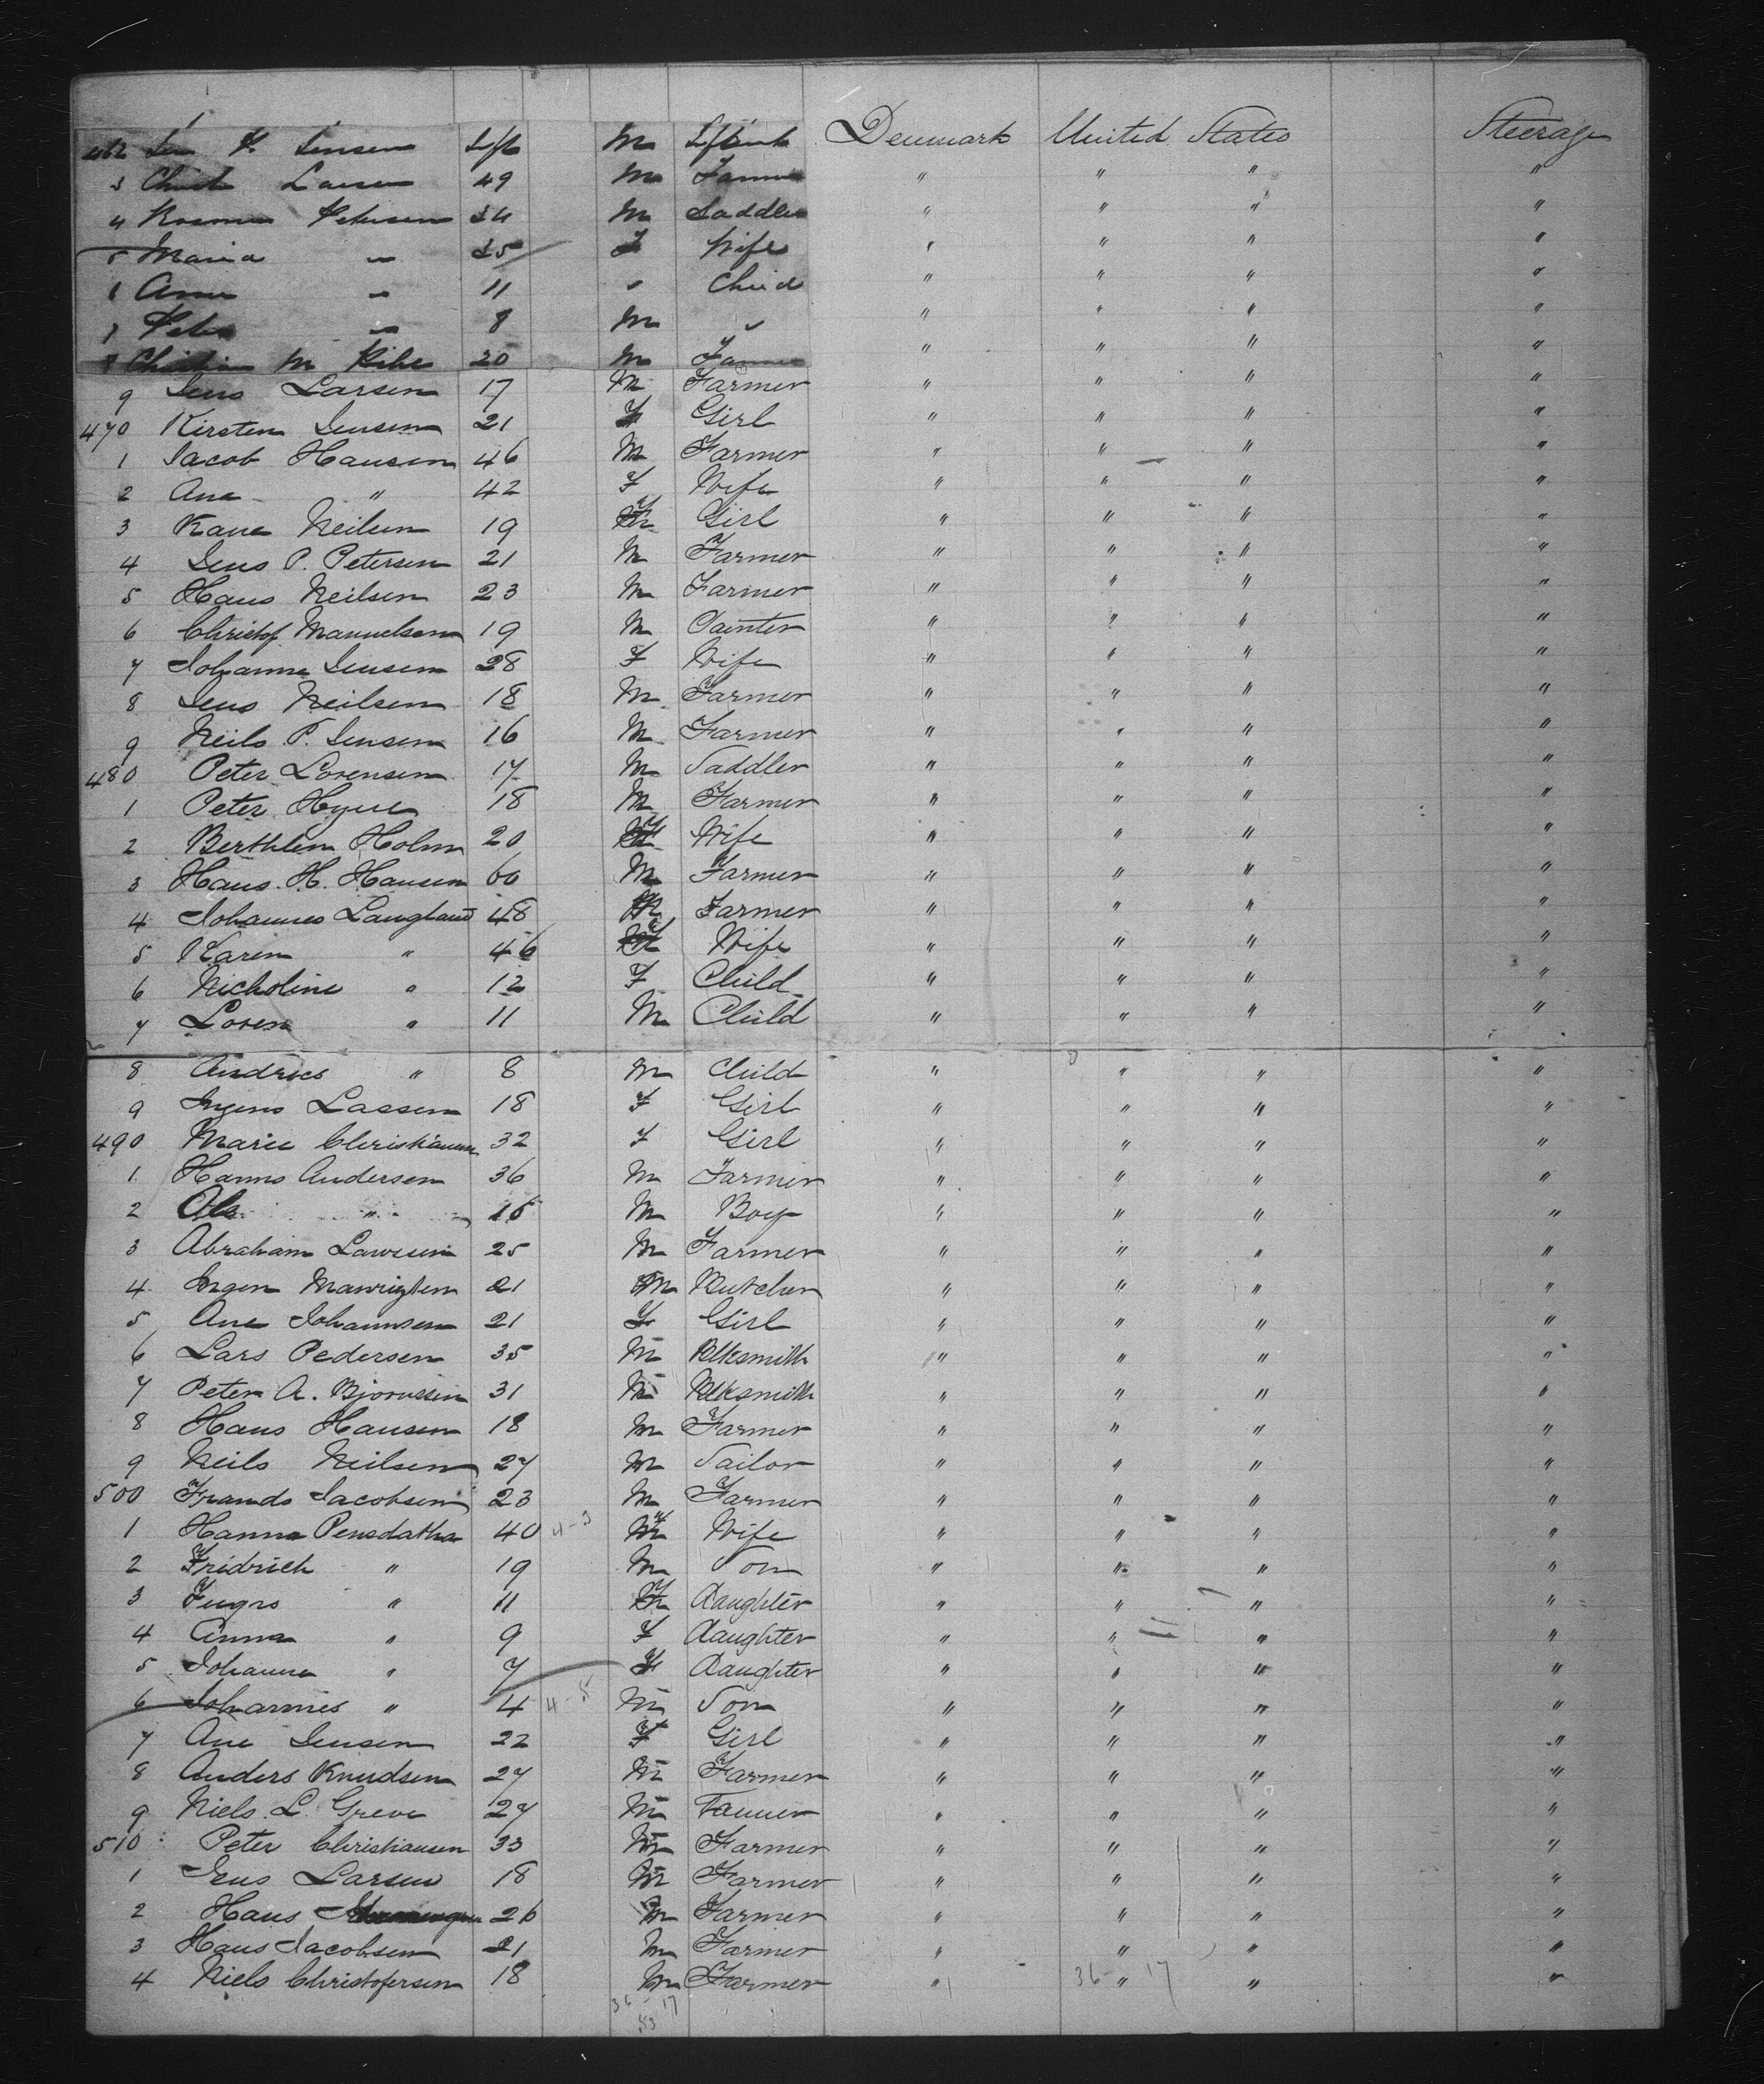 462 Jensen M Denmark United States Steerage
3 Larsen 49 M Farmer " " " "
4 Petersen 34 M Saddler " " " "
5 Maria " 35 F Wife " " " "
6 Anna " 11 " Child " " " "
7 Peter " 8 M " " " " "
8 M 20 M Farmer " " " "
9 Jens Larsen 17 M Farmer " " " "
470 Kirsten Jensen 21 F Girl " " " "
1 Jacob Hansen 46 M Farmer " " " "
2 Ane " 42 F Wife " " " "
3 Kane Neilsen 19 F Girl " " " "
4 Jens P. Petersen 21 M Farmer " " " "
5 Hans Neilsen 23 M Farmer " " " "
6 Christof Manuelsen 19 M Painter " " " "
7 Johanne Jensen 28 F Wife " " " "
8 Jens Neilsen 18 M Farmer " " " "
9 Neils P. Jensen 16 M Farmer " " " "
480 Peter Lorensen 17 M Saddler " " " "
1 Peter 18 M Farmer " " " "
2 Holm 20 F Wife " " " "
3 Hans H. Hansen 60 M Farmer " " " "
4 Johannes Langland 48 M Farmer " " " "
5 Karen " 46 F Wife " " " "
6 Nicholine " 12 F Child " " " "
7 Loren " 11 M Child " " " "
8 Andries " 8 M Child " " " "
9 Lassen 18 F Girl " " " "
490 Marie Christiansen 32 F Girl " " " "
1 Hanns Andersen 36 M Farmer " " " "
2 Ole " 15 M Boy " " " "
3 Abraham Lawssen 25 M Farmer " " " "
4 21 M Butcher " " " "
5 Ane Johannsen 21 F Girl " " " "
6 Lars Pedersen 35 M Blksmith " " " "
7 Peter A. Bjornssen 31 M Blksmith " " " "
8 Hans Hansen 18 M Farmer " " " "
9 Neils Neilsen 27 M Sailor " " " "
500 Frands Jacobsen 23 M Farmer " " " "
1 Hanna 40 4-3 F Wife " " " "
2 Fridrich " 19 M Son " " " "
3 " 11 F Daughter " " " "
4 Anna " 9 F Daughter " " " "
5 Johanne " 7 F Daughter " " " "
6 Johannes " 4 4-5 M Son " " " "
7 Ane Jensen 22 F Girl " " " "
8 Anders Knudsen 27 M Farmer " " " "
9 Niels L. Greve 27 M Tanner " " " "
510 Peter Christiansen 33 M Farmer " " " "
1 Jens Larsen 18 M Farmer " " " "
2 Hans 26 M Farmer " " " "
3 Hans Jacobsen 21 M Farmer " " " "
4 Niels Christofersen 18 M Farmer " 36 " 17 " "
36 - 17
53